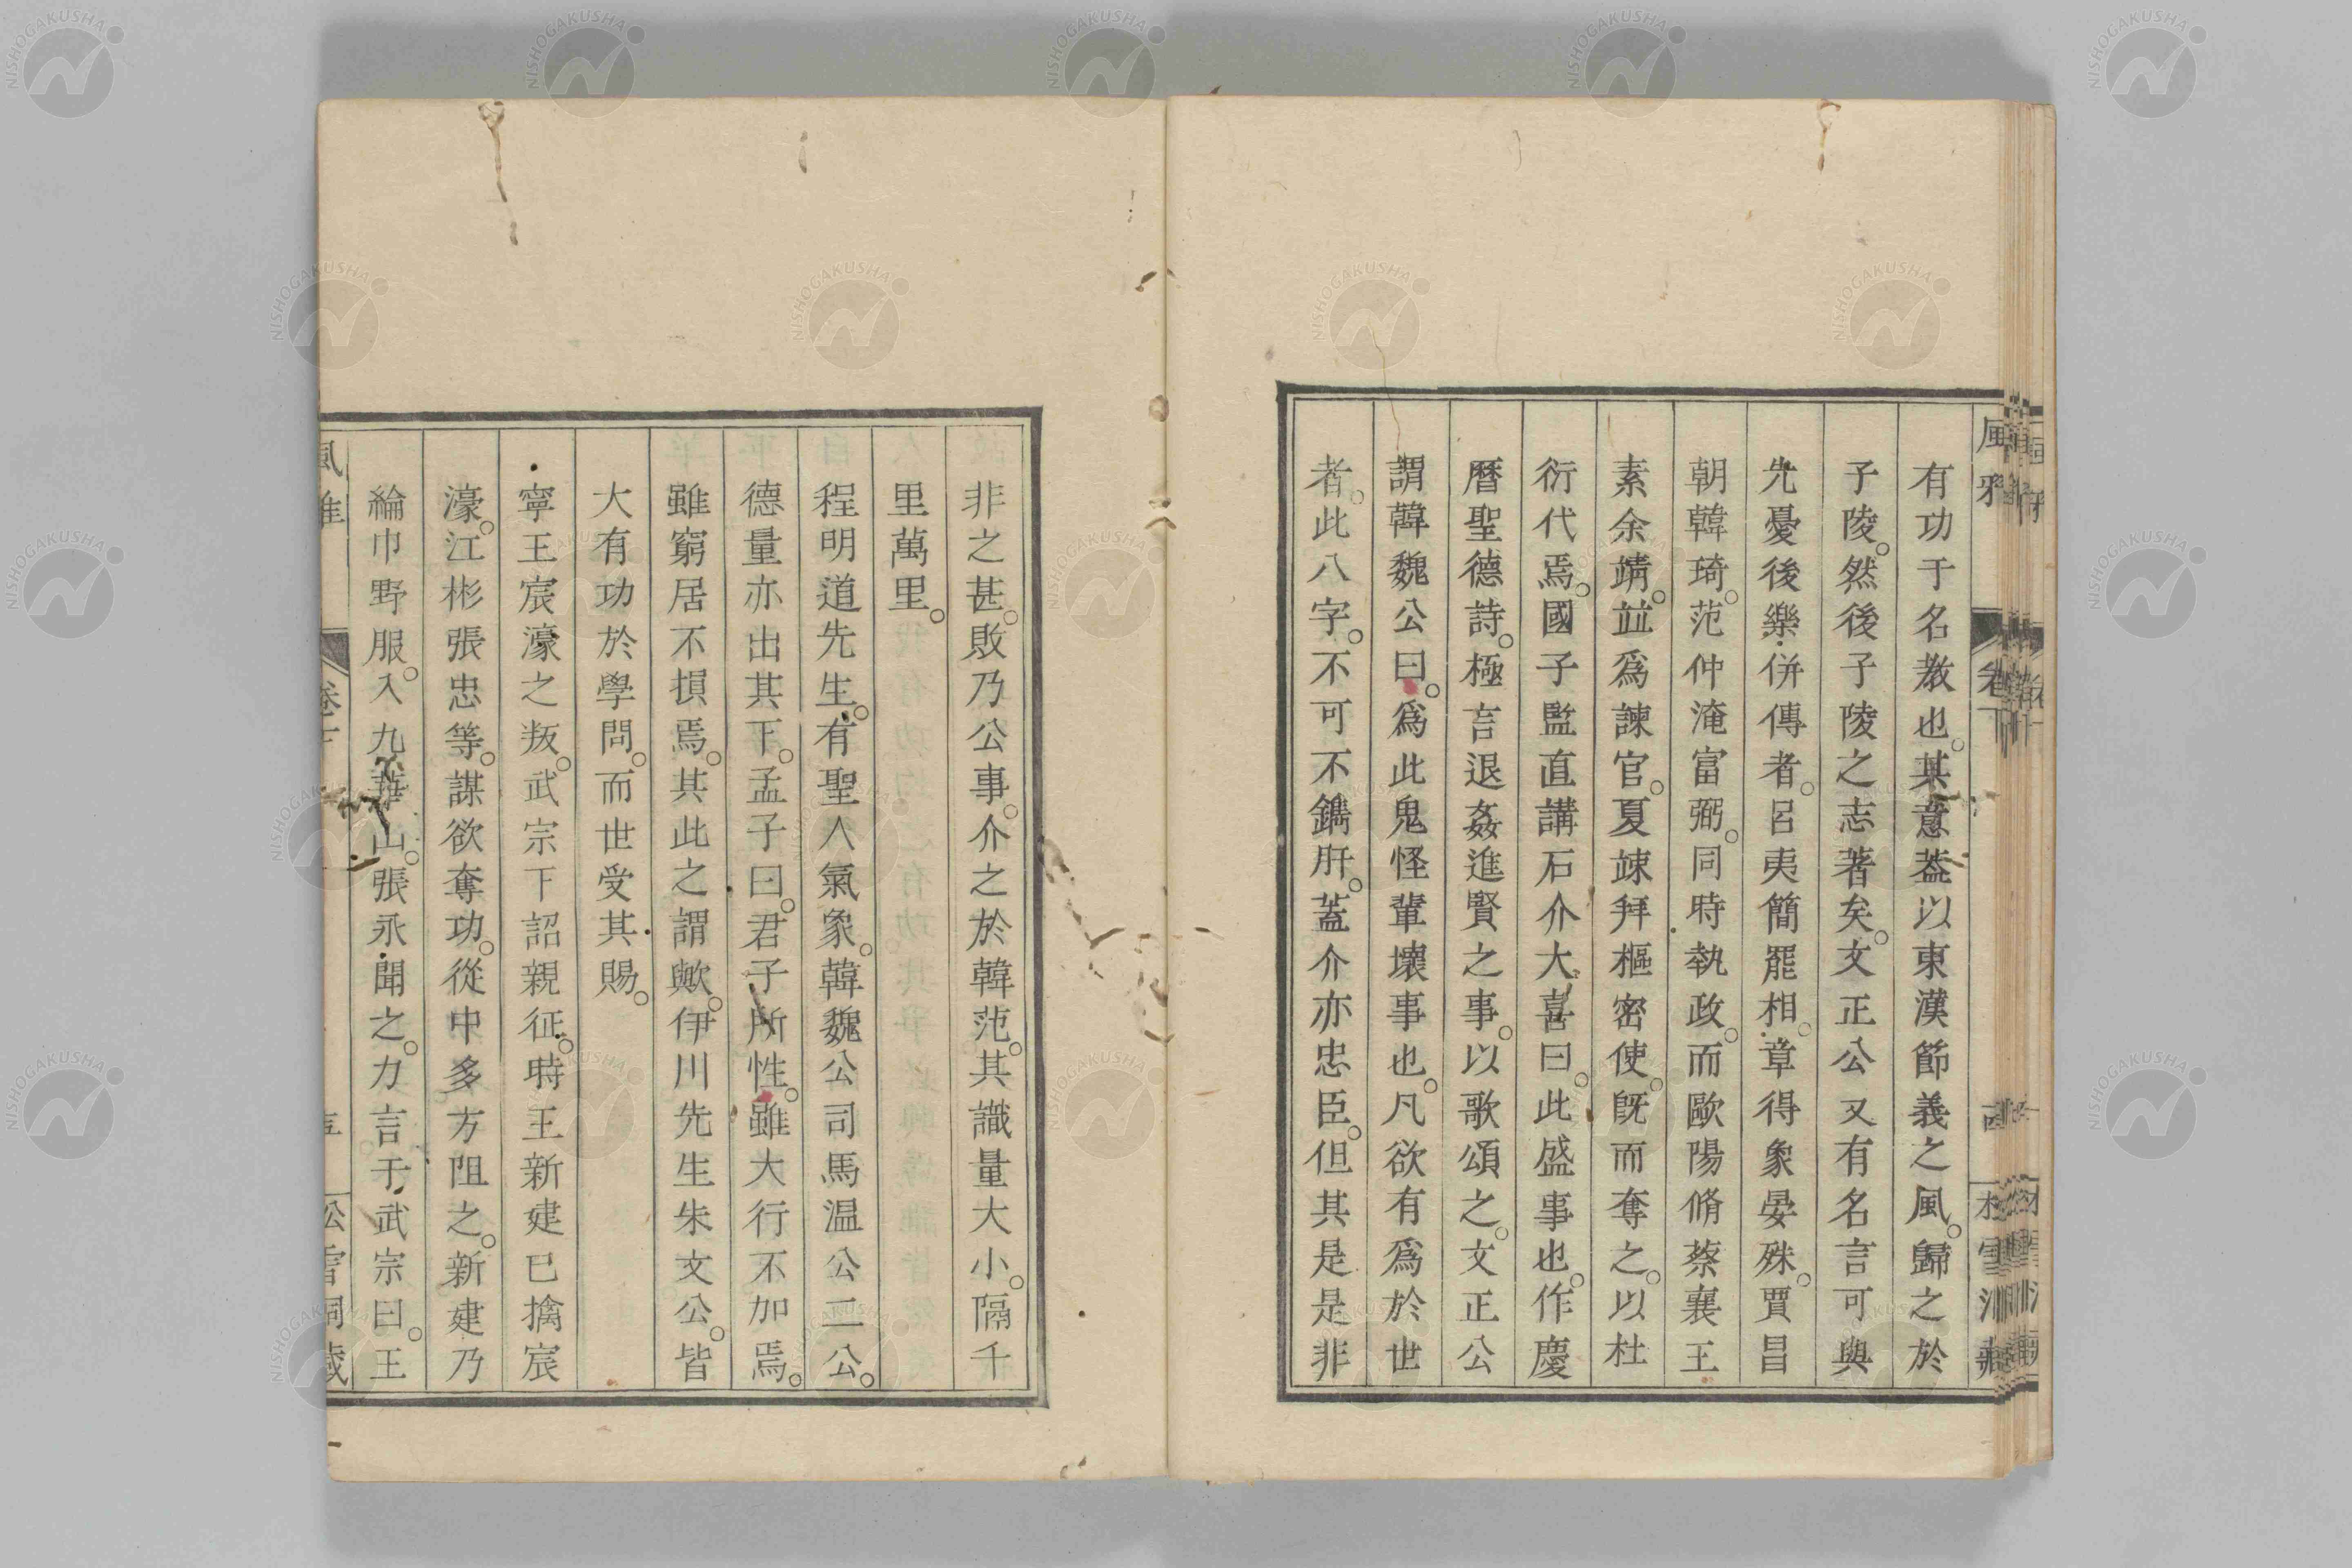 有功于名教也。其意葢以東漢節義之風。歸之於
子陵。然後子陵之志著矣。文正公又有名言可與
先憂後樂併傳者。呂夷簡罷相。章得象晏殊。賈昌
朝韓琦。范仲淹富弼。同時執政。而歐陽脩蔡襄王
素余靖。並爲諫官。夏竦拜樞密使。旣而奪之。以杜
衍代焉。國子監直講石介大喜曰。此盛事也。作慶
曆聖德詩。極言退姦進賢之事。以歌頌之。文正公
謂韓魏公曰。爲此鬼怪輩壞事也。凡欲有爲於世
者。此八字。不可不鐫肝。葢介亦忠臣。但其是是非
非之甚。敗乃公事。介之於韓范。其識量大小。隔千
里萬里。
程明道先生。有聖人氣象。韓魏公司馬温公二公。
德量亦出其下。孟子曰。君子所性。雖大行不加焉。
雖窮居不損焉。其此之謂歟。伊川先生朱文公。皆
大有功於學問。而世受其賜。
寧王宸濠之叛。武宗下詔親征。時王新建已擒宸
濠。江彬張忠等。謀欲奪功。從中多方阻之。新建乃
綸巾野服。入九華山。張永聞之。力言于武宗曰。王